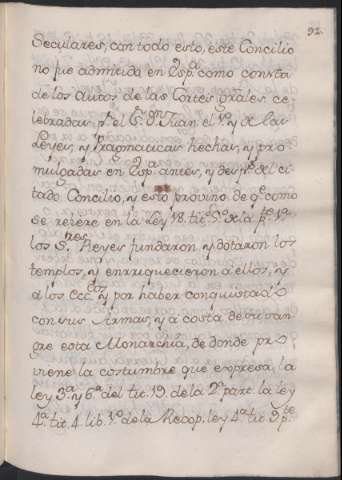 92.
Seculares, con todo esto, este Concilio
no fue admitida en Esp.ª como consta
de los Autos de las Cortes grales. ce-
lebradas p.r el S.r D.n Juan el 1.º y de las
Leyes, y Pragmaticas hechas, y pro-
mulgadas en Esp.ª antes, y desp.s del ci-
tado Concilio, y esto provino de q.e como
se refiere en la Ley 18. tit. 5.º de la p.e 1.ª
los S.res Reyes fundaron y dotaron los
templos, y enrriquecieron a ellos, y
a los Ecc.cos y por haber conquistado
con sus Armas, y a costa de su san-
gre esta Monarchia, de donde pro
viene la costumbre que expresa la
ley 3.ª y 6.ª del tit. 19. de la 2.ª part. la ley
4.ª tit. 4. lib. 1.º de la Recop. ley 4.ª tit. 9 p.te